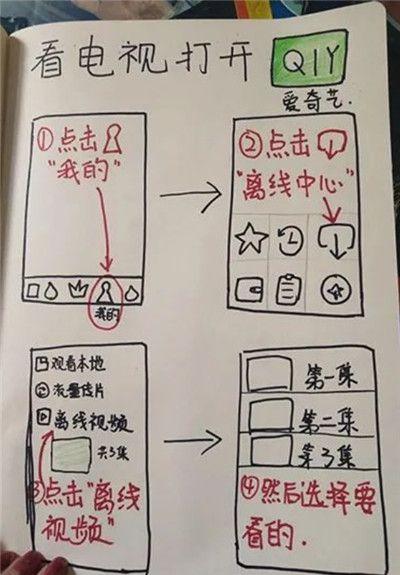 看电视打开 QIY
爱奇艺.
①点击
"我的"
我的
②点击
"离线中心"
观看本地
流量传片
离线视频
共3集
③点击"离线
视频"
第一集
第二集
第3集
④然后选择要
看的.